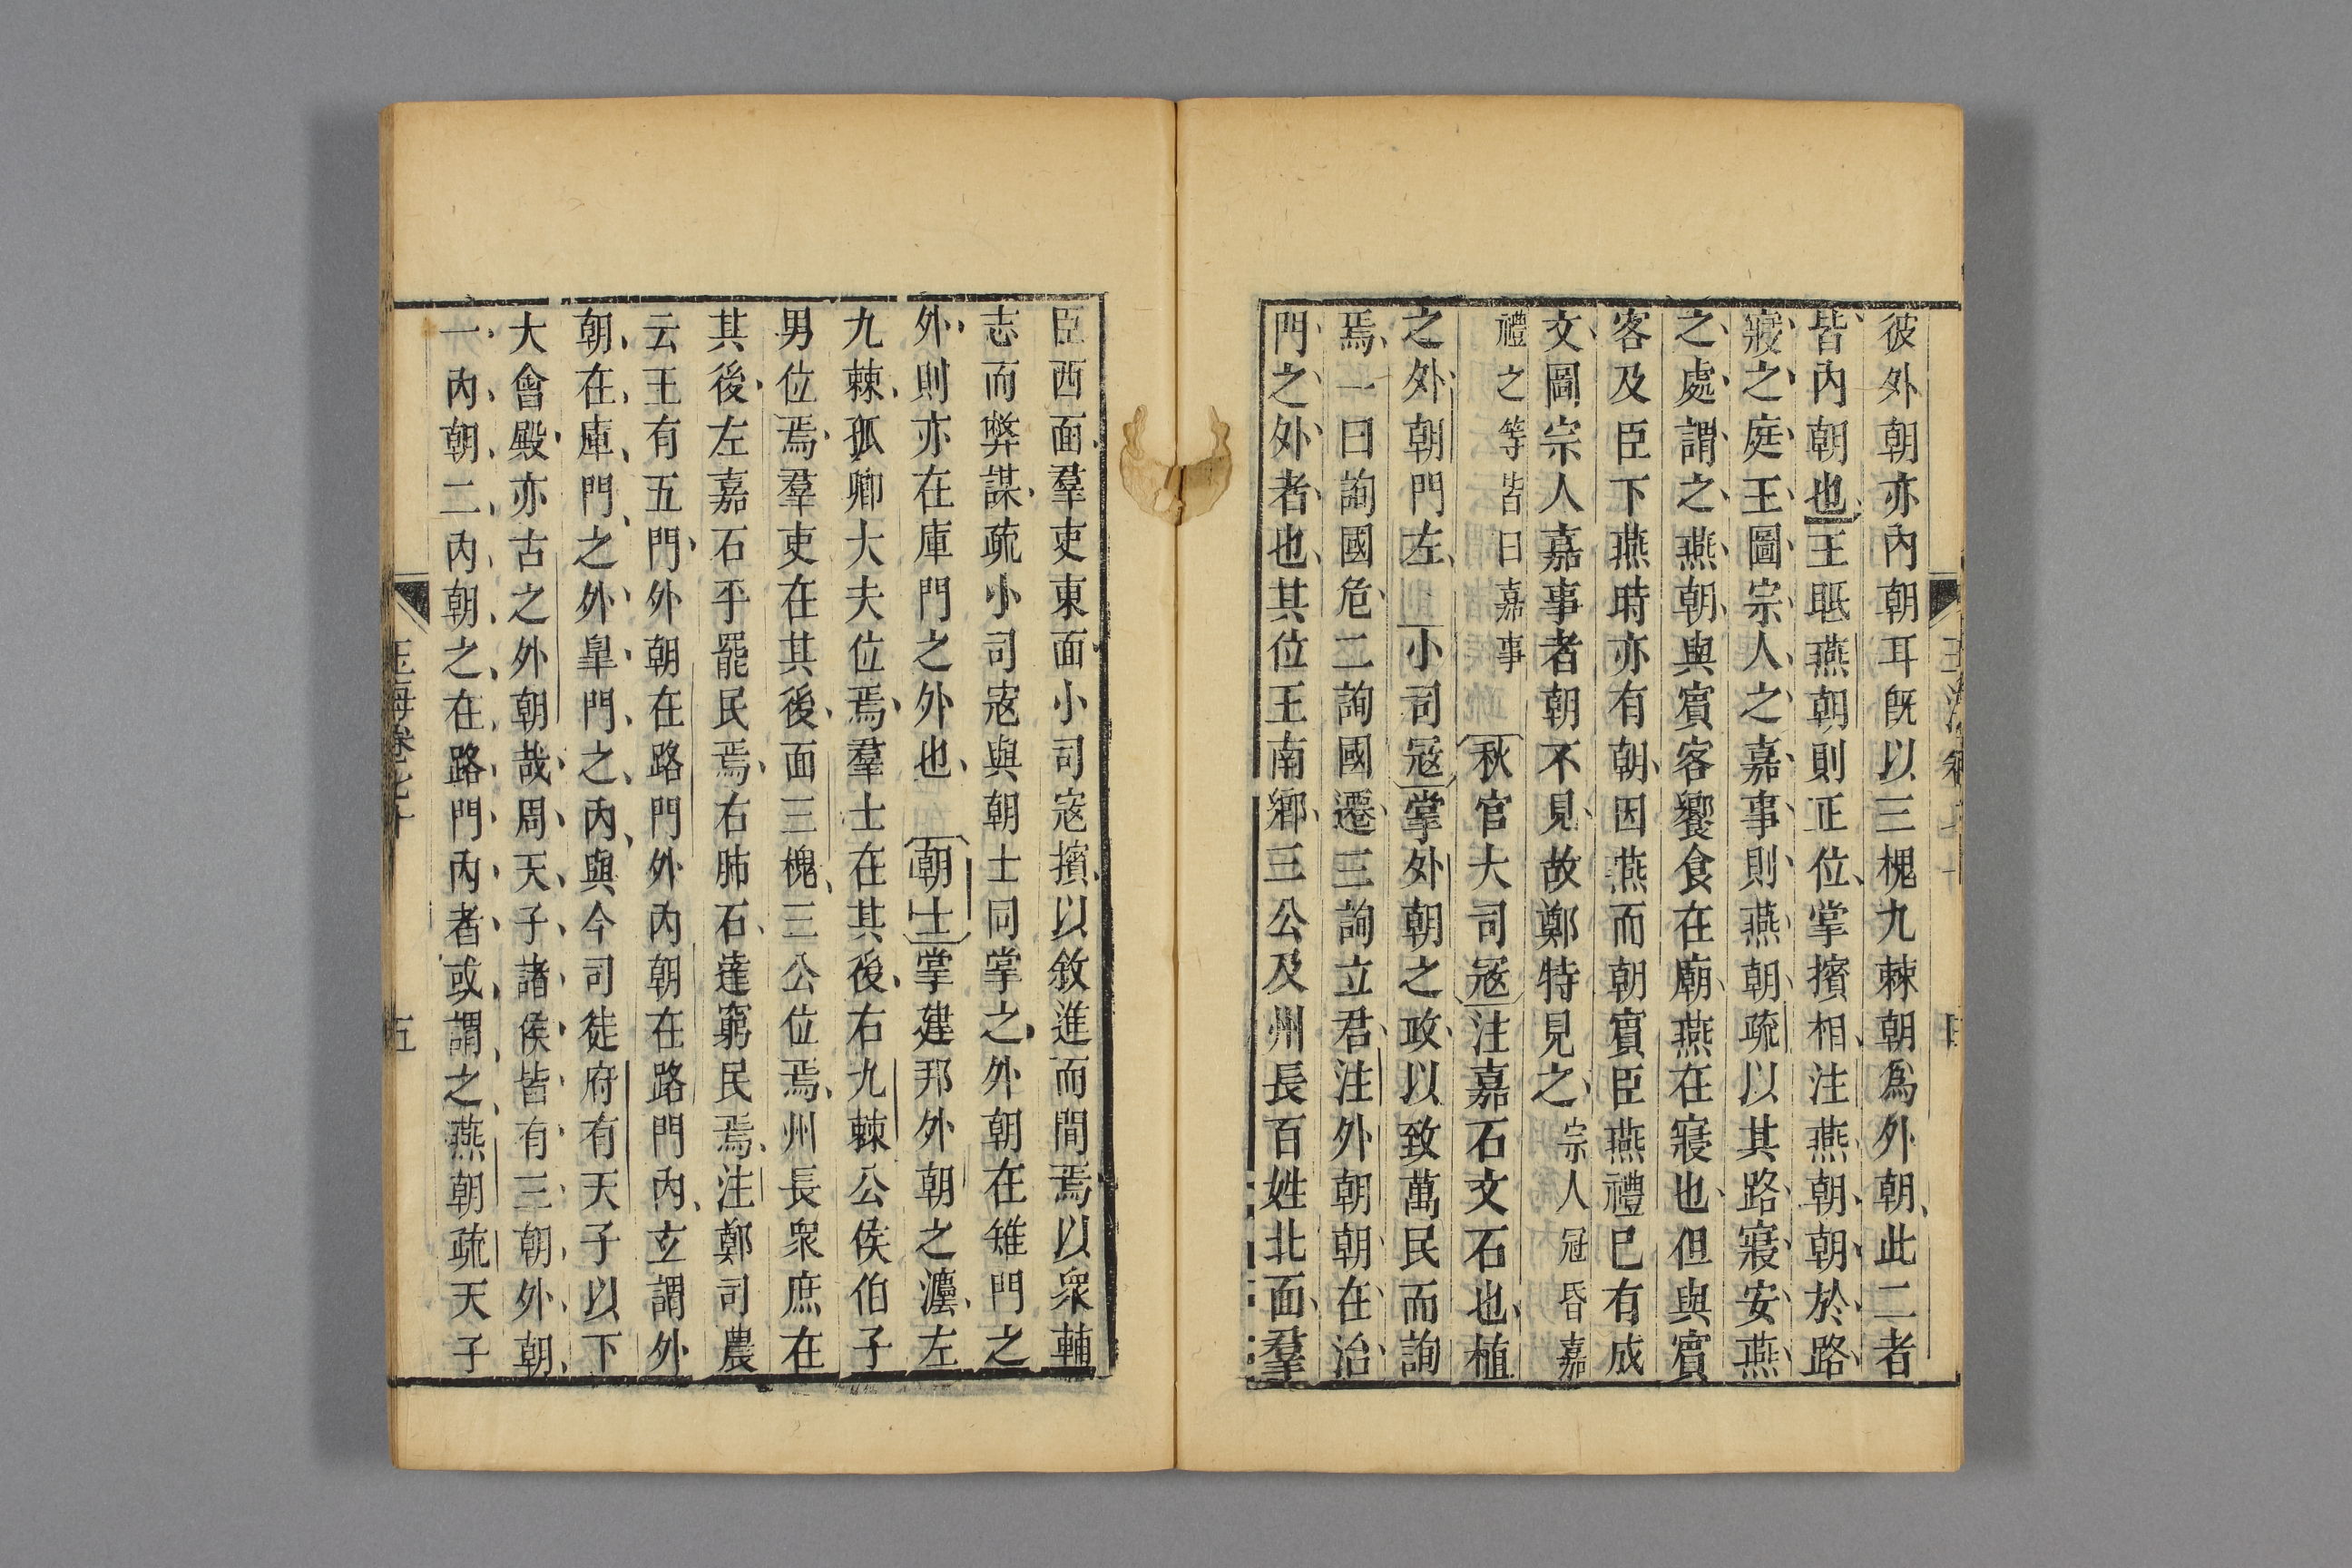 彼外朝亦內朝耳旣以三槐九棘朝爲外朝此二者
皆內朝也王眡燕朝則正位掌擯相注燕朝朝於路
寢之庭王圖宗人之嘉事則燕朝疏以其路寢安燕
之處謂之燕朝與賓客饗食在廟燕在寢也但與賓
客及臣下燕時亦有朝因燕而朝賓臣燕禮已有成
文圖宗人嘉事者朝不見故鄭特見之宗人冠昏嘉
禮之等皆曰嘉事秋官大司宼注嘉石文石也植
之外朝門左小司宼掌外朝之政以致萬民而詢
焉一曰詢國危二詢國遷三詢立君注外朝朝在治
門之外者也其位王南鄉三公及州長百姓北面羣
臣西面羣吏東面小司宼擯以敘進而問焉以衆輔
志而弊謀疏小司宼與朝士同掌之外朝在雉門之
外則亦在庫門之外也朝士掌建邦外朝之灋左
九棘孤卿大夫位焉羣士在其後右九棘公侯伯子
男位焉羣吏在其後面三槐三公位焉州長衆庶在
其後左嘉石平罷民焉右肺石達窮民焉注鄭司農
云王有五門外朝在路門外內朝在路門內玄謂外
朝在庫門之外臯門之內與今司徒府有天子以下
大會殿亦古之外朝哉周天子諸侯皆有三朝外朝
一內朝二內朝之在路門內者或謂之燕朝疏天子
玉海卷七十
五